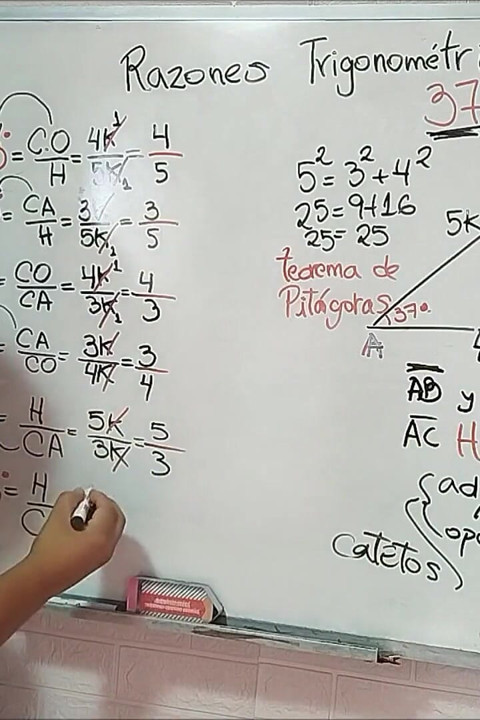 Razones Trigonométri
37
= C.O/H = 4K/5K = 4/5
= CA/H = 3/5K = 3/5
= CO/CA = 4K/3K = 4/3
= CA/CO = 3K/4K = 3/4
= H/CA = 5K/3K = 5/3
= H/C
5² = 3² + 4²
25 = 9+16
25 = 25
teorema de
Pitágoras
5K
37°
A
AB y
AC H
Catetos
ad
opo